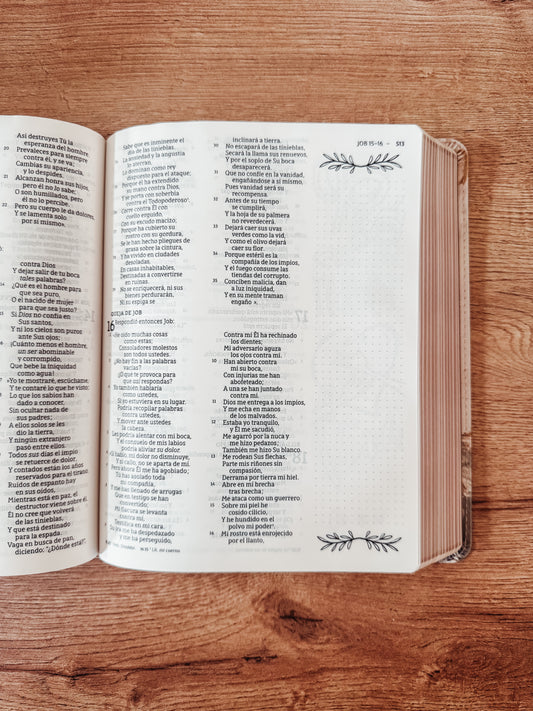 Así destruyes Tú la
esperanza del hombre.
20 Prevaleces para siempre
contra él, y se va;
Cambias su apariencia,
y lo despides.
21 Alcanzan honra sus hijos,
pero él no lo sabe;
O son humillados, pero
él no lo percibe.
22 Pero su cuerpo le da dolores,
Y se lamenta solo
por sí mismo».
contra Dios
Y dejar salir de tu boca
tales palabras?
¿Qué es el hombre para
que sea puro,
O el nacido de mujer
para que sea justo?
Si Dios no confía en
Sus santos,
Y ni los cielos son puros
ante Sus ojos;
¡Cuánto menos el hombre,
un ser abominable
y corrompido,
Que bebe la iniquidad
como agua!
»Yo te mostraré, escúchame,
Y te contaré lo que he visto;
Lo que los sabios han
dado a conocer,
Sin ocultar nada de
sus padres;
A ellos solos se les
dio la tierra,
Y ningún extranjero
pasó entre ellos.
Todos sus días el impío
se retuerce de dolor,
Y contados están los años
reservados para el tirano.
Ruidos de espanto hay
en sus oídos,
Mientras está en paz, el
destructor viene sobre él.
Él no cree que volverá
de las tinieblas,
Y que está destinado
para la espada.
Vaga en busca de pan,
diciendo: "¿Dónde está?".
JOB 15–16 - 513
Sabe que es inminente el
día de las tinieblas.
La ansiedad y la angustia
lo aterran,
Lo dominan como rey
dispuesto para el ataque;
Porque él ha extendido
su mano contra Dios,
Y se porta con soberbia
contra el Todopoderoso.
Corre contra Él con
cuello erguido,
Con su escudo macizo;
Porque ha cubierto su
rostro con su gordura,
Se le han hecho pliegues de
grasa sobre la cintura,
Y ha vivido en ciudades
desoladas,
En casas inhabitables,
Destinadas a convertirse
en ruinas.
No se enriquecerá, ni sus
bienes perdurarán,
Ni su espiga se
inclinará a tierra.
30 No escapará de las tinieblas,
Secará la llama sus renuevos,
Y por el soplo de Su boca
desaparecerá.
31 Que no confíe en la vanidad,
engañándose a sí mismo,
Pues vanidad será su
recompensa.
32 Antes de su tiempo
se cumplirá,
Y la hoja de su palmera
no reverdecerá.
33 Dejará caer sus uvas
verdes como la vid,
Y como el olivo dejará
caer su flor.
34 Porque estéril es la
compañía de los impíos,
Y el fuego consume las
tiendas del corrupto.
35 Conciben malicia, dan
a luz iniquidad,
Y en su mente traman
engaño».
QUEJA DE JOB
16 Respondió entonces Job:
«He oído muchas cosas
como estas;
Consoladores molestos
son todos ustedes.
¿No hay fin a las palabras
vacías?
¿O qué te provoca para
que así respondas?
Yo también hablaría
como ustedes,
Si yo estuviera en su lugar.
Podría recopilar palabras
contra ustedes,
Y mover ante ustedes
la cabeza.
Los podría alentar con mi boca,
Y el consuelo de mis labios
podría aliviar su dolor.
»Si hablo, mi dolor no disminuye,
Y si callo, no se aparta de mí.
Pero ahora Él me ha agobiado;
Tú has asolado toda
mi compañía,
Y me has llenado de arrugas
Que en testigo se han
convertido;
Mi flacura se levanta
contra mí,
Testifica en mi cara.
Su ira me ha despedazado
y me ha perseguido,
Contra mí Él ha rechinado
los dientes;
Mi adversario aguza
los ojos contra mí.
10 Han abierto contra
mí su boca,
Con injurias me han
abofeteado;
A una se han juntado
contra mí.
11 Dios me entrega a los impíos,
Y me echa en manos
de los malvados.
12 Estaba yo tranquilo,
y Él me sacudió,
Me agarró por la nuca y
me hizo pedazos;
También me hizo Su blanco.
13 Me rodean Sus flechas,
Parte mis riñones sin
compasión,
Derrama por tierra mi hiel.
14 Abre en mí brecha
tras brecha;
Me ataca como un guerrero.
15 Sobre mi piel he
cosido cilicio,
Y he hundido en el
polvo mi poder.
16 Mi rostro está enrojecido
por el llanto,
16:15 Lit. mi cuerno